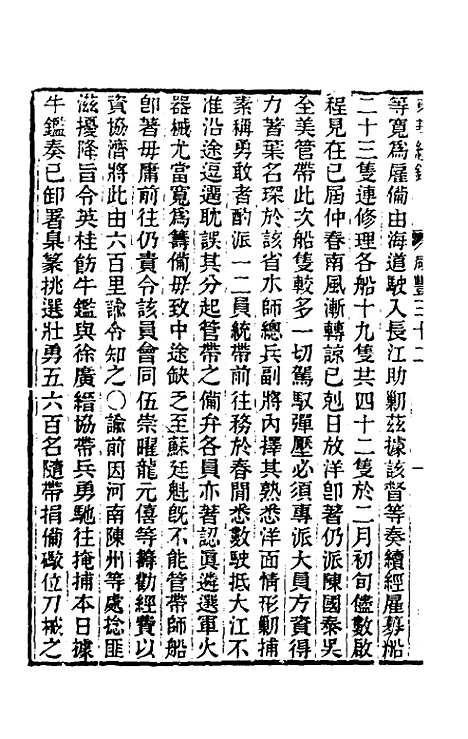 東華續錄 咸豐三十二 一
等寬爲雇備由海道駛入長江助剿茲據該督等奏續經雇募船
二十三隻連修理各船十九隻共四十二隻於二月初旬儘數啟
程見在已屆仲春南風漸轉諒已剋日放洋卽著仍派陳國泰吳
全美管帶此次船隻較多一切駕馭彈壓必須專派大員方資得
力著葉名琛於該省水師總兵副將內擇其熟悉洋面情形剿捕
素稱勇敢者酌派一二員統帶前往務於春閒悉數駛抵大江不
准沿途逗遛耽誤其分起管帶之備弁各員亦著認眞遴選軍火
器械尤當寬爲籌備毋致中途缺乏至蘇廷魁旣不能管帶師船
卽著毋庸前往仍責令該員會同伍崇曜龍元僖等籌勸經費以
資協濟將此由六百里諭令知之〇諭前因河南陳州等處捻匪
滋擾降旨令英桂飭牛鑑與徐廣縉協帶兵勇馳往掩捕本日據
牛鑑奏已卸署臬篆挑選壯勇五六百名隨帶捐備礮位刀械之